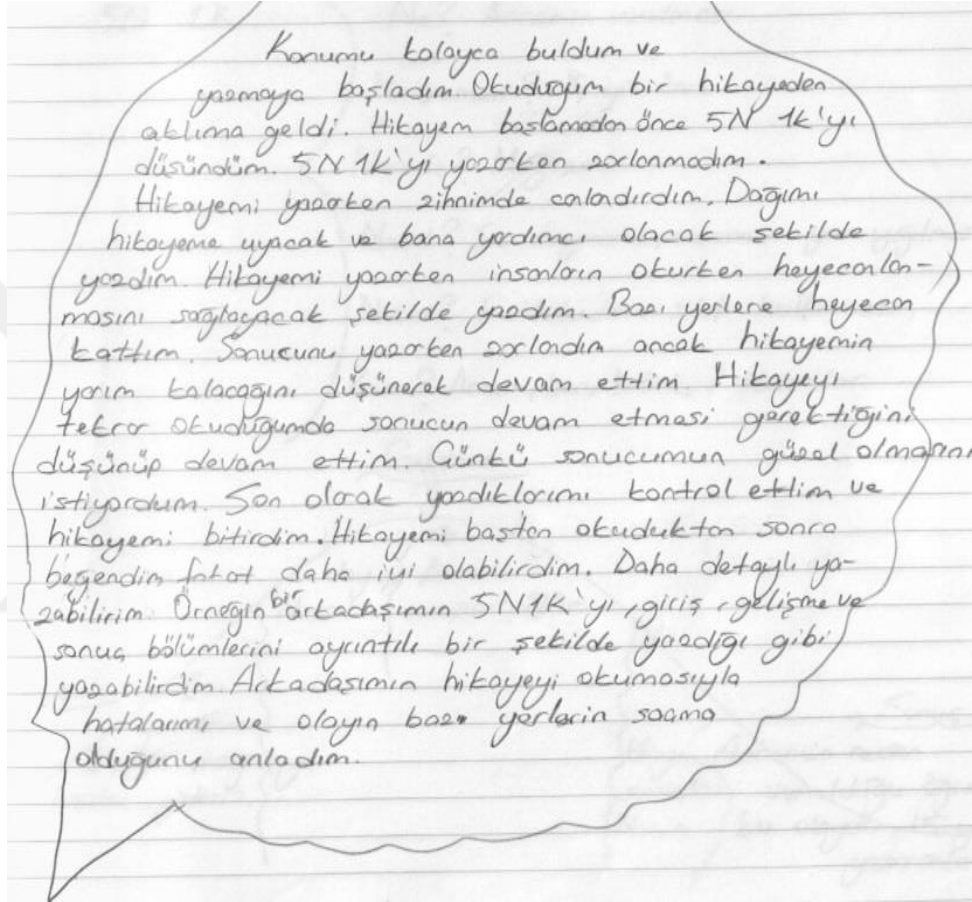 Konumu kolayca buldum ve
yazmaya başladım. Okuduğum bir hikayeden
aklıma geldi. Hikayem başlamadan önce 5N 1k'yı
düşündüm. 5N1k'yı yazarken zorlanmadım.
Hikayemi yazarken zihnimde canlandırdım. Dağımı
hikayeme uyacak ve bana yardımcı olacak şekilde
yazdım. Hikayemi yazarken insanların okurken heyecanlan-
masını sağlayacak şekilde yazdım. Bazı yerlere heyecan
kattım. Sonucunu yazarken zorlandım ancak hikayemin
yarım kalacağını düşünerek devam ettim. Hikayeyi
tekrar okuduğumda sonucun devam etmesi gerektiğini
düşünüp devam ettim. Günkü sonucumun güzel olmasını
istiyordum. Son olarak yazdıklarımı kontrol ettim ve
hikayemi bitirdim. Hikayemi baştan okuduktan sonra
beğendim fakat daha iyi olabilirdim. Daha detaylı ya-
zabilirim. Örneğin bir arkadaşımın 5N1K'yı, giriş, gelişme ve
sonuç bölümlerini ayrıntılı bir şekilde yazdığı gibi
yazabilirdim. Arkadaşımın hikayeyi okumasıyla
hatalarımı ve olayın bazı yerlerin saçma
olduğunu anladım.